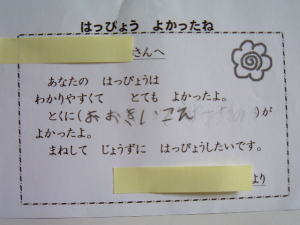 はっぴょう よかったね
さんへ
あなたの はっぴょうは
わかりやすくて とても よかったよ。
とくに(おおきいこえ )が
よかったよ。
まねして じょうずに はっぴょうしたいです。
より